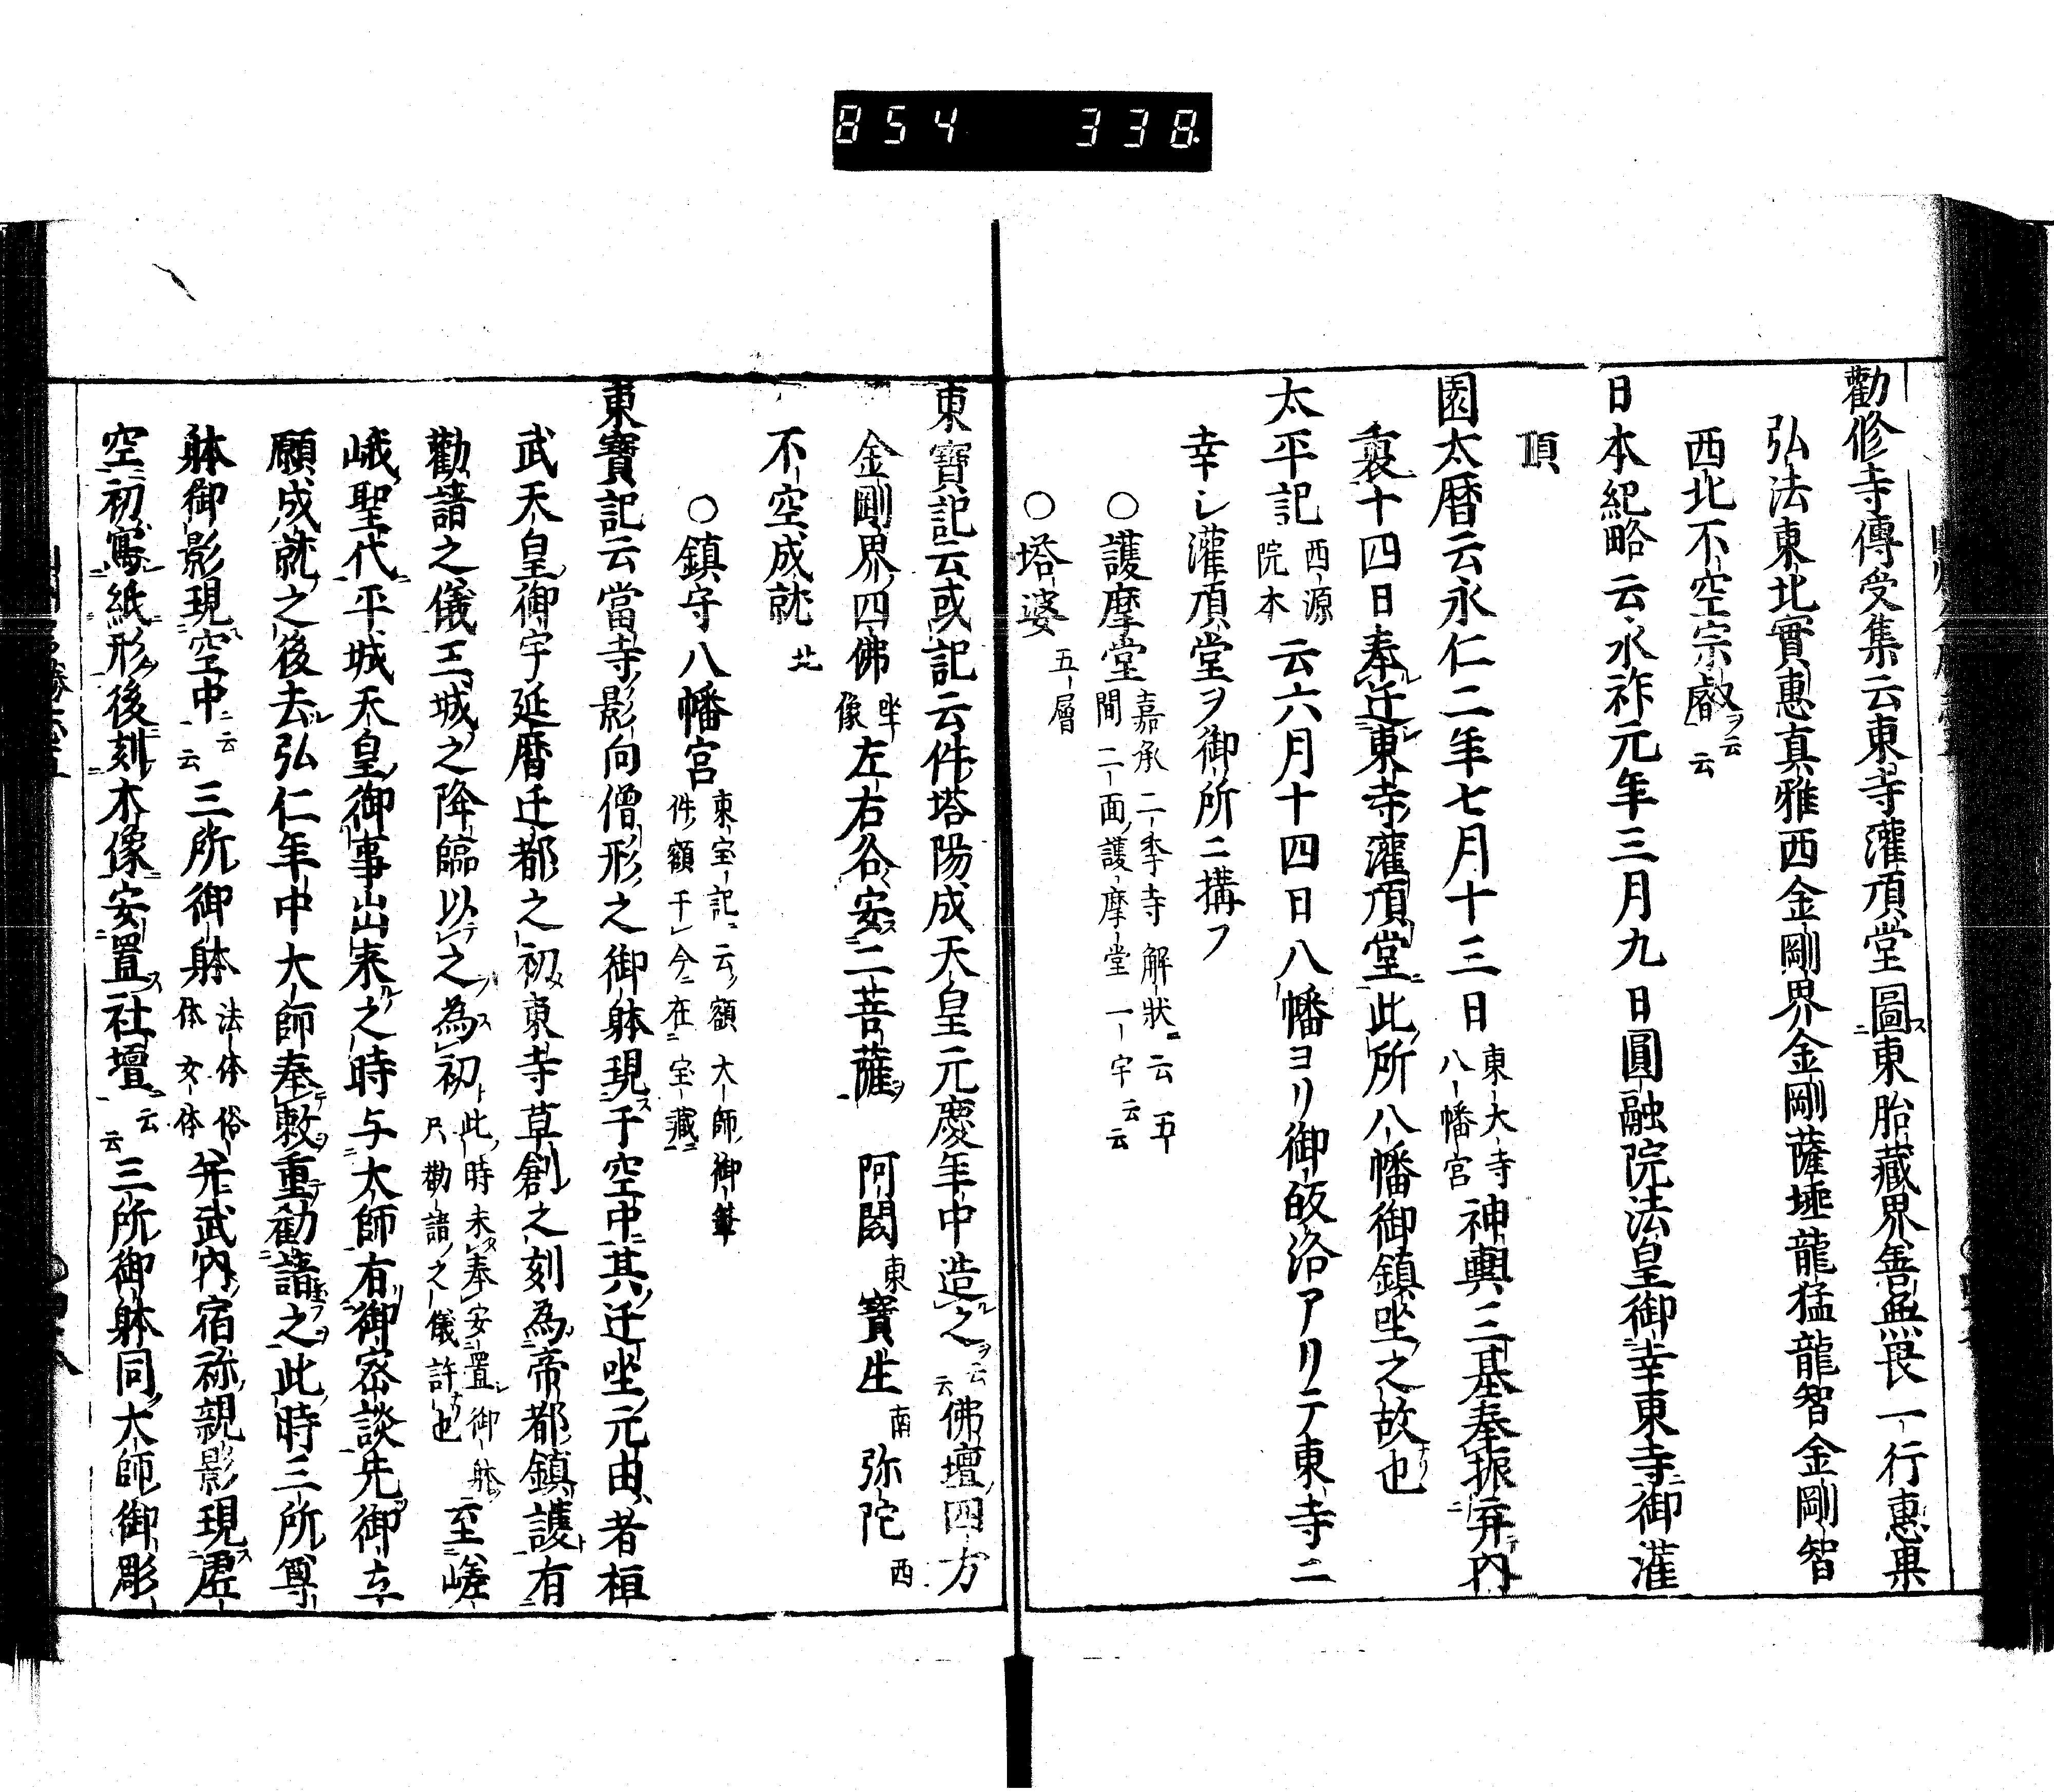 854 338
勸修寺傳受集云東寺灌頂堂圖東胎藏界善無畏一行惠果
弘法東北實惠真雅西金剛界金剛薩埵龍猛龍智金剛智
西北不空宗叡云云
日本紀略云永祚元年三月九日圓融院法皇御幸東寺御灌
頂
園太暦云永仁二年七月十三日東大寺八幡宮神輿三基奉振弃内
裏十四日奉迁東寺灌頂堂此所八幡御鎮坐之故也
太平記西源院本云六月十四日八幡ヨリ御皈洛アリテ東寺ニ
幸シ灌頂堂ヲ御所ニ搆フ
○護摩堂嘉承二季寺解状云五間二面護摩堂一宇云云
○塔婆五層
東寶記云或記云件塔陽成天皇元慶年中造之云云佛壇四方
金剛界四佛坐像左右各安二菩薩 阿閦東寶生南弥陀西
不空成就北
○鎮守八幡宮東宝記云額大師御筆件額于今在宝藏
東寶記云當寺影向僧形之御躰現于空中其迁坐元由者桓
武天皇御宇延暦迁都之初東寺草創之刻為帝都鎮護有
勸請之儀王城之降臨以之為初此時未奉安置御躰只勸請之儀許也至嵯
峨聖代平城天皇御事出来之時与大師有御密談先御立
願成就之後去弘仁年中大師奉敕重勸請之此時三所尊
躰御影現空中云云三所御躰法体俗体女体并武内宿祢親影現虚
空初寫紙形後刻木像安置社壇云云三所御躰同大師御彫